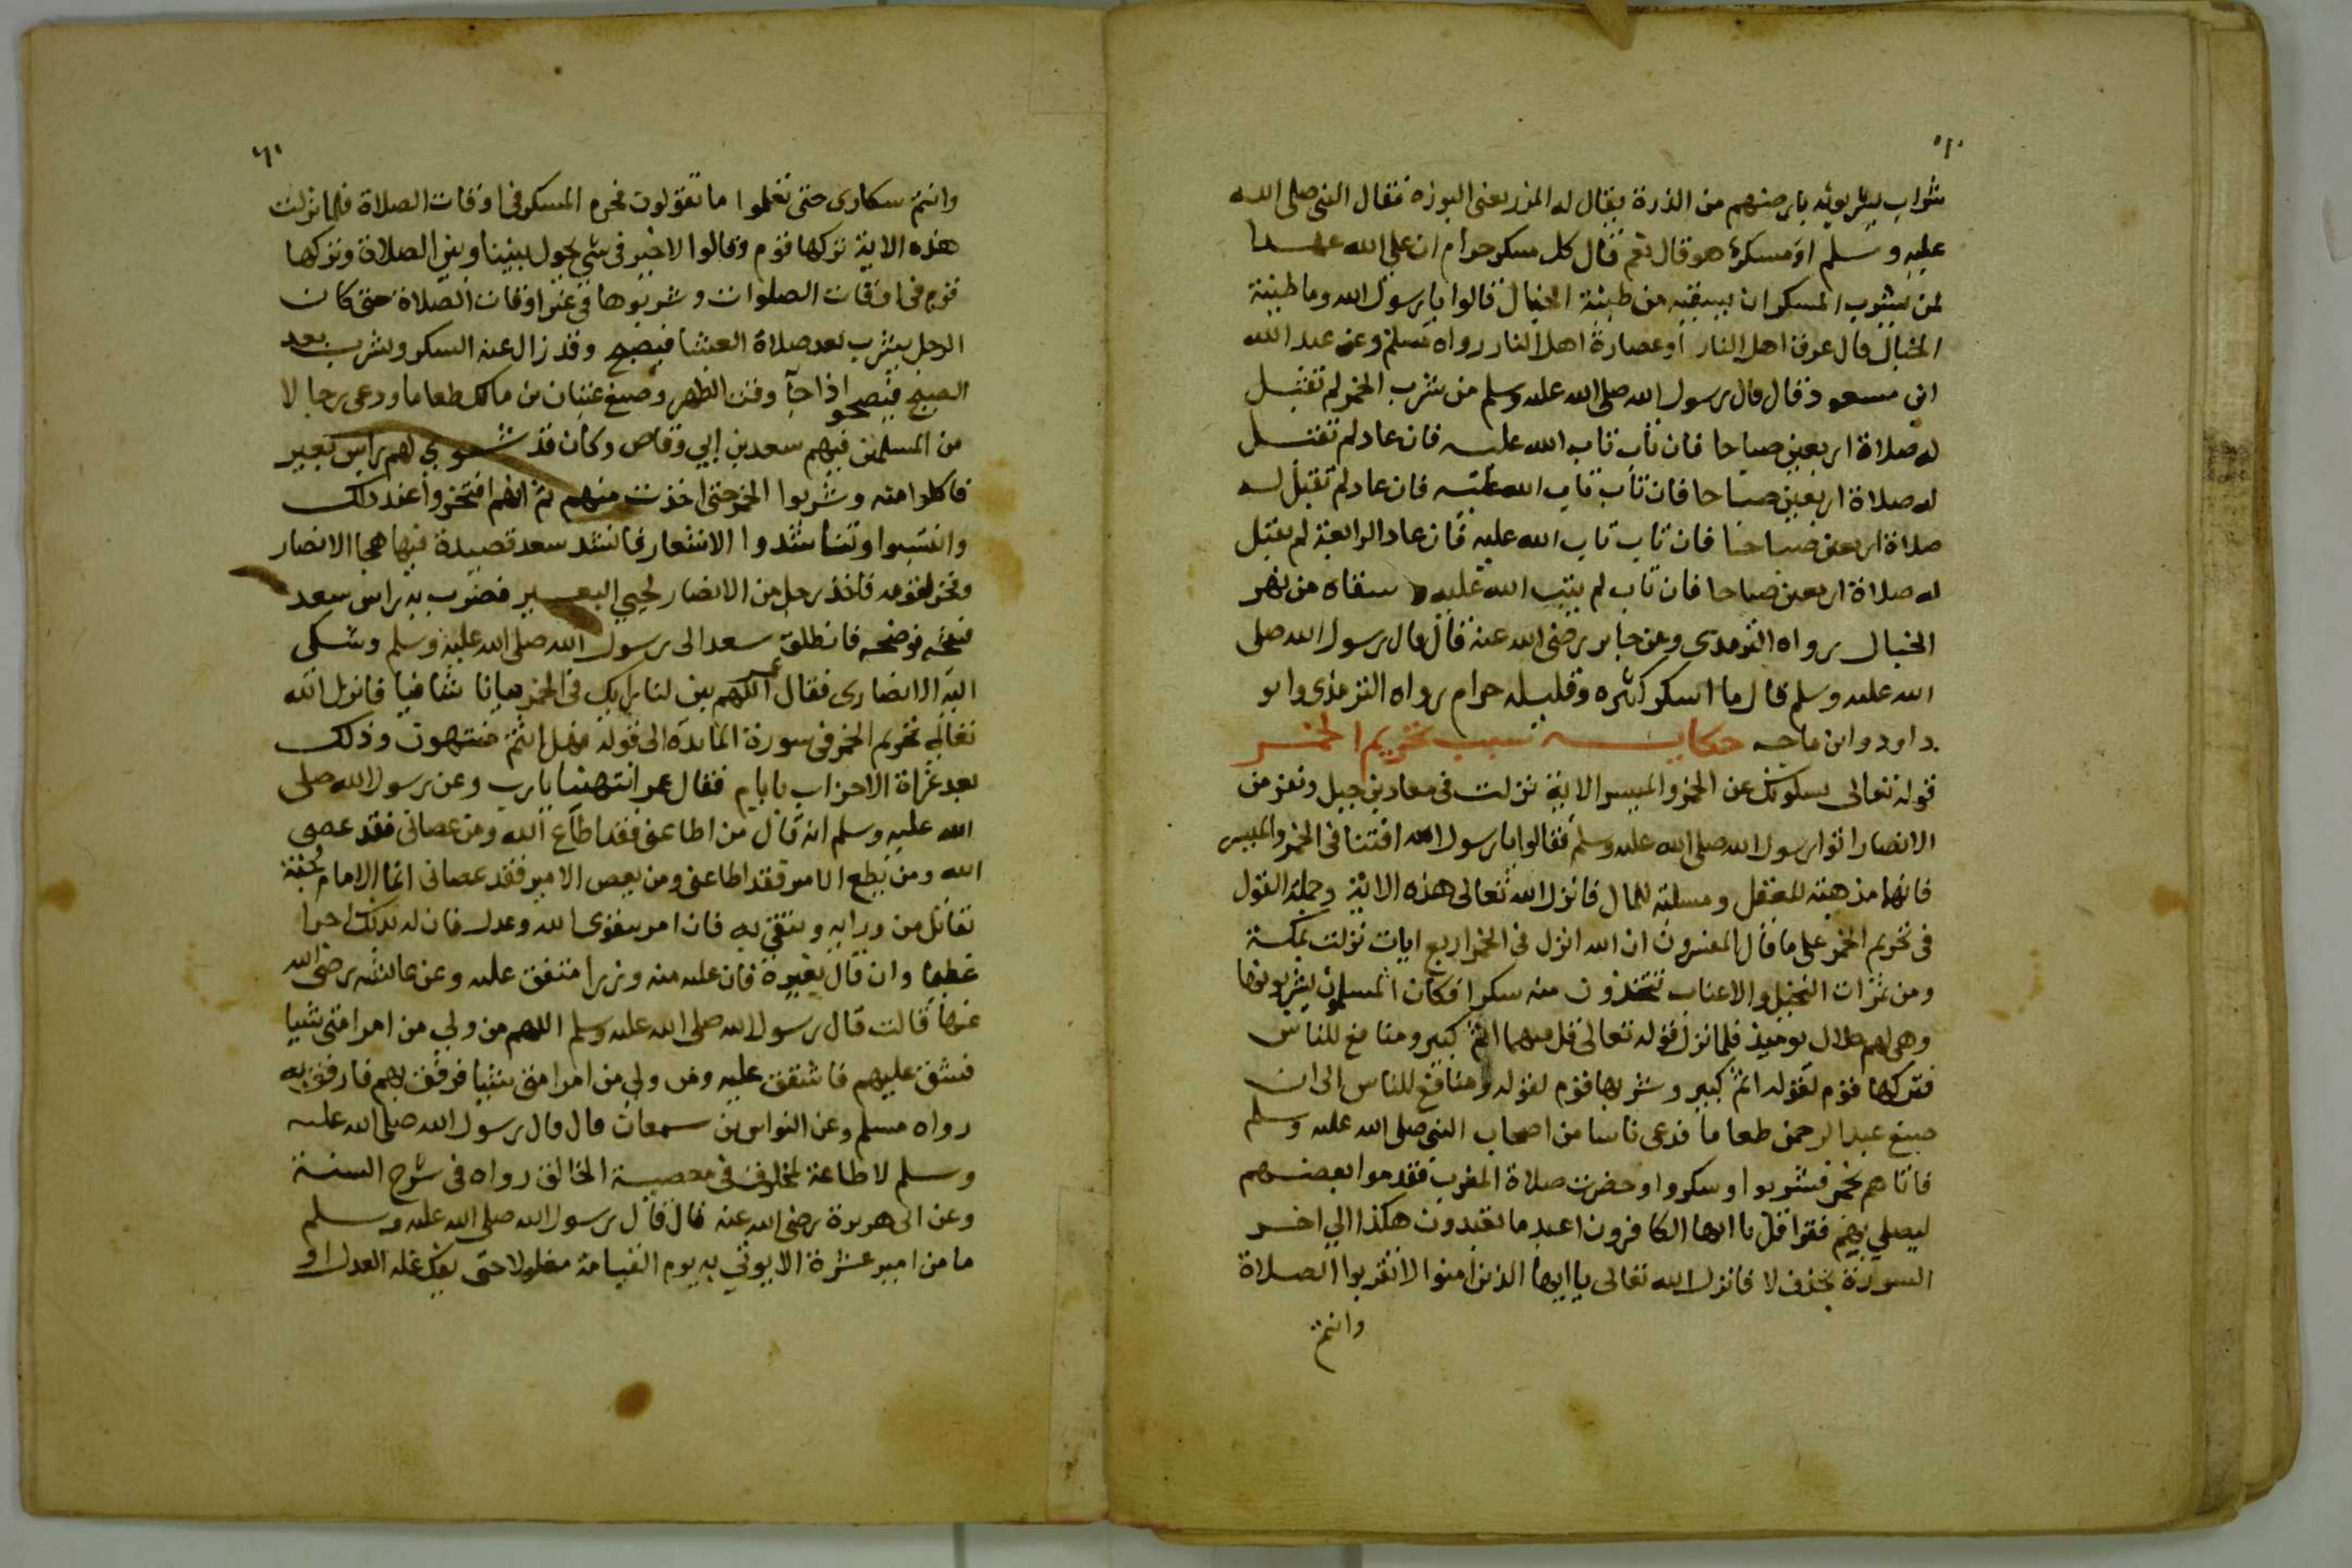 شراب يشربونه بارضهم من الذرة يقال له المزر يعنى البوزه فقال النبى صلى الله
عليه وسلم او مسكر هو قال نعم قال كل مسكر حرام ان على الله عهدا
لمن يشرب المسكر ان يسقيه من طينة الخبال قالوا يا رسول الله وما طينة
الخبال قال عرق اهل النار او عصارة اهل النار رواه مسلم وعن عبد الله
ابن مسعود قال قال رسول الله صلى الله عليه وسلم من شرب الخمر لم تقبل
له صلاة اربعين صباحا فان تاب تاب الله عليه فان عاد لم تقبل
له صلاة اربعين صباحا فان تاب تاب الله عليه فان عاد لم تقبل له
صلاة اربعين صباحا فان تاب تاب الله عليه فان عاد الرابعة لم يقبل
له صلاة اربعين صباحا فان تاب لم يتب الله عليه وسقاه من نهر
الخبال رواه الترمدى وعن جابر رضى الله عنه قال قال رسول الله صلى
الله عليه وسلم قال ما اسكر كثره وقليله حرام رواه الترمذى وابو
داود وابن ماجه حكاية سبب تحريم الخمر
قوله تعالى يسلونك عن الخمر والميسر الاية نزلت فى معاد بن جبل ونفر من
الانصار اتوا رسول الله صلى الله عليه وسلم فقالوا يا رسول الله افتنا فى الخمر والميسر
فانهما مذهبة للعقل ومسلبة للمال فانزل الله تعالى هذه الاية وجملة القول
فى تحريم الخمر على ما قال المفسرون ان الله انزل فى الخمر اربع ايات نزلت بمكة
ومن ثمرات النخيل والاعناب تتخذون منه سكرا فكان المسلمون يشربونها
وهى لهم حلال يوميذ فلما نزل قوله تعالى قل فيهما اثم كبير ومنافع للناس
فتركها قوم لقوله اثم كبير وشربها قوم لقوله ومنافع للناس الى ان
صنع عبد الرحمن طعاما فدعى ناسا من اصحاب النبى صلى الله عليه وسلم
فاتاهم بخمر فشربوا وسكروا وحضرت صلاة المغرب فقدموا بعضهم
ليصلي بهم فقرا قل يا ايها الكافرون اعبد ما تعبدون هكذا الي اخر
السورة بحذف لا فانزل الله تعالى يا ايها الذين امنوا لا تقربوا الصلاة
وانتم
وانتم سكارى حتى تعلموا ما تقولون فحرم المسكر فى اوقات الصلاة فلما نزلت
هذه الاية تركها قوم وقالوا لا خير فى شي يحول بيننا وبين الصلاة وتركها
قوم فى اوقات الصلوات وشربوها فى غير اوقات الصلاة حتى كان
الرجل يشرب بعد صلاة العشا فيصبح وقد زال عنه السكر ويشرب بعد
الصبح فيصحو اذا جآ وقت الظهر وصنع عتبان بن مالك طعاما ودعى رجالا
من المسلمين فيهم سعد بن ابي وقاص وكان قد شوي لهم راس بعير
فاكلوا منه وشربوا الخمر حتى اخذت منهم ثم انهم افتخروا عند ذلك
وانتسبوا وتناشدوا الاشعار فانشد سعد قصيدة فيها هجا الانصار
وفخر لقومه فاخذ رجل من الانصار لحيي البعير فضرب به راس سعد
فشجه موضحه فانطلق سعد الى رسول الله صلى الله عليه وسلم وشكى
اليه الانصارى فقال عمر اللهم بين لنا رايك فى الخمر بيانا شافيا فانزل الله
تعالى تحريم الخمر فى سورة المايدة الى قوله فهل انتم منتهون وذلك
بعد غزاة الاحزاب بايام فقال عمر انتهينا يا رب وعن رسول الله صلى
الله عليه وسلم انه قال من اطاعنى فقد اطاع الله ومن عصانى فقد عصى
الله ومن يطع الامير فقد اطاعنى ومن يعص الامير فقد عصانى انما الامام جنة
تقاتل من ورايه ويتقى به فان امر بتقوى الله وعدل فان له بذلك اجرا
عظيما وان قال بغيره فان عليه منه وزرا متفق عليه وعن عائشه رضى الله
عنها قالت قال رسول الله صلى الله عليه وسلم اللهم من ولي من امر امتى شيا
فشق عليهم فاشقق عليه ومن ولي من امر امتى شيا فرفق بهم فارفق به
رواه مسلم وعن النواس بن سمعان قال قال رسول الله صلى الله عليه
وسلم لا طاعة لمخلوق فى معصية الخالق رواه فى شرح السنة
وعن ابى هريرة رضى الله عنه قال قال رسول الله صلى الله عليه وسلم
ما من امير عشرة الا يوتى به يوم القيامة مغلولا حتى يفك غله العدل او